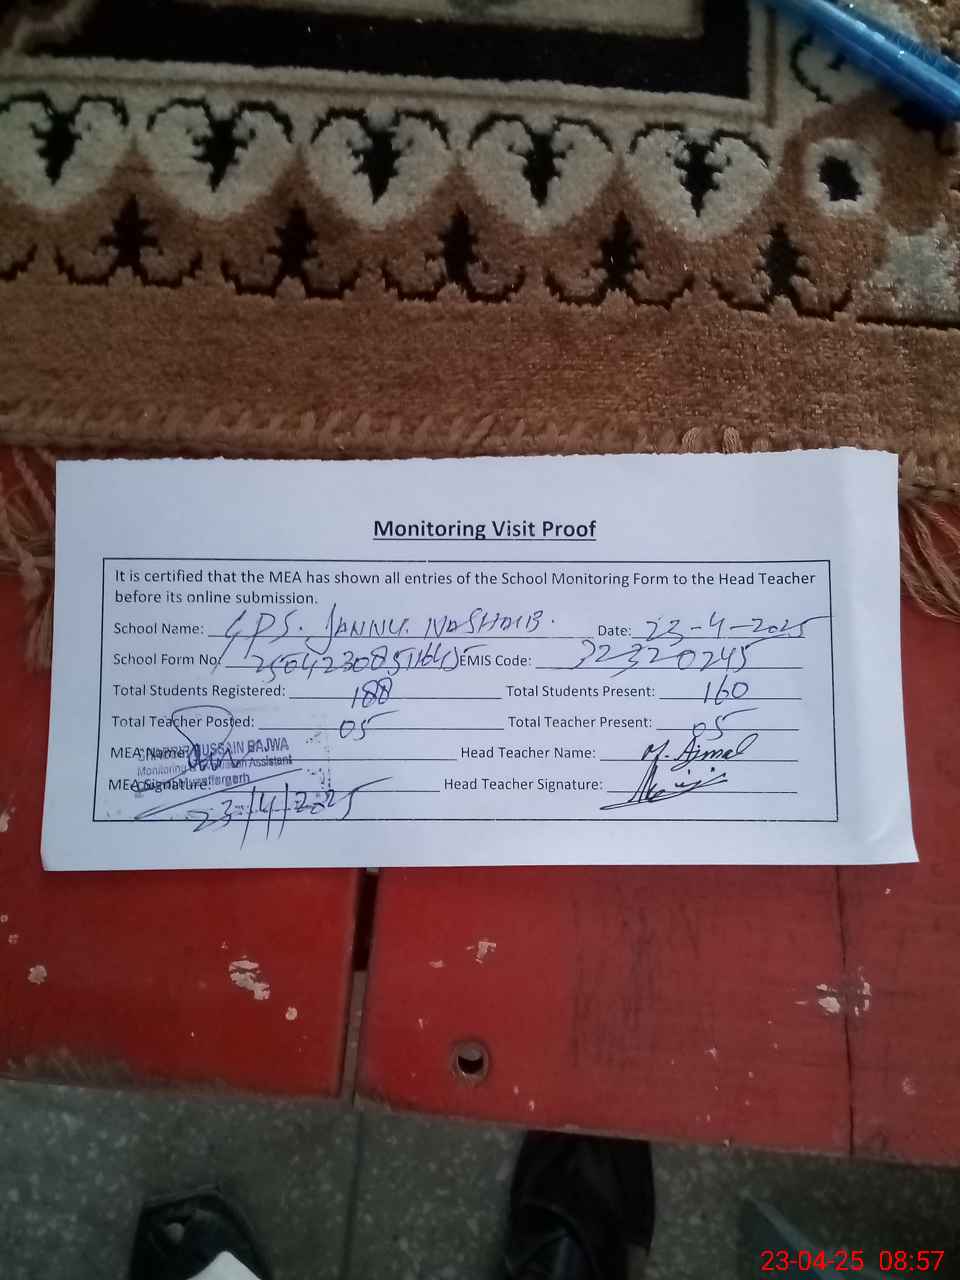 Monitoring Visit Proof
It is certified that the MEA has shown all entries of the School Monitoring Form to the Head Teacher
before its online submission.
School Name: GPS. JANNU. NASHAIB. Date: 23-4-2025
School Form No: EMIS Code: 32320245
Total Students Registered: 188 Total Students Present: 160
Total Teacher Posted: 05 Total Teacher Present: 05
MEA Name: HUSSAIN BAJWA Head Teacher Name: M. Ajmal
Monitoring & Assistant
MEA Signature: Muzaffargarh Head Teacher Signature:
23/4/2025
23-04-25 08:57